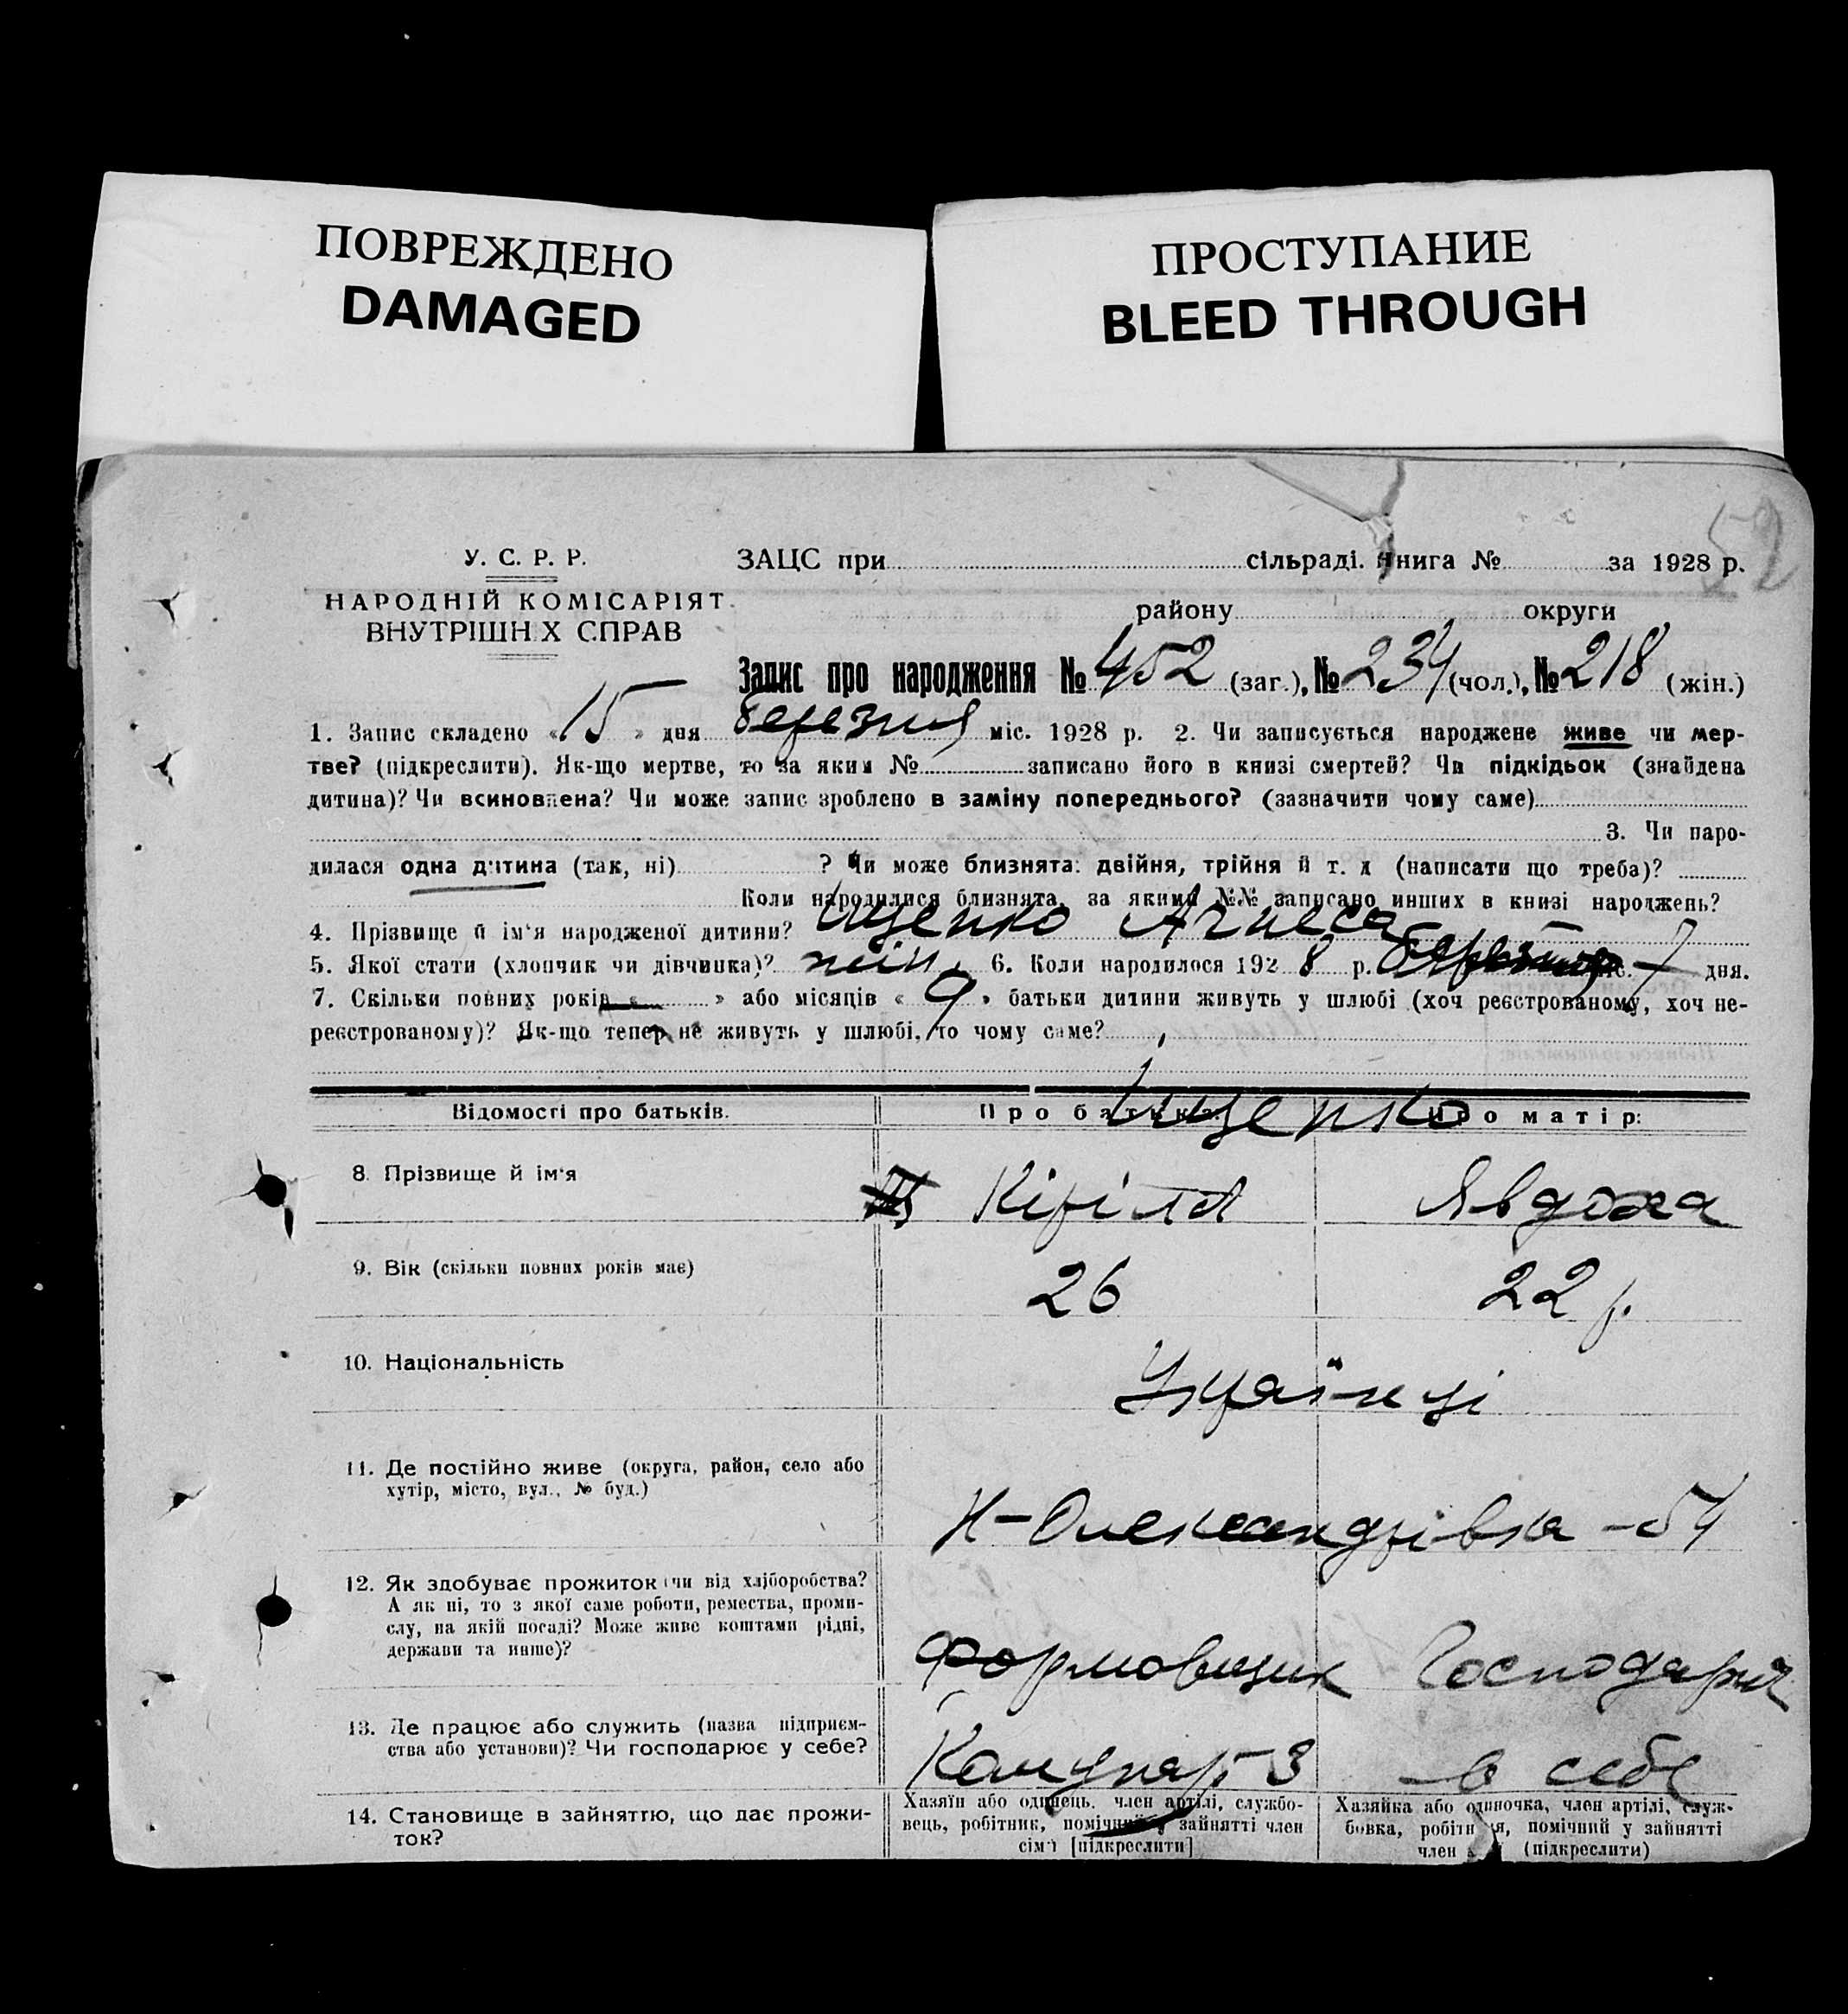 ПОВРЕЖДЕНО
DAMAGED
ПРОСТУПАНИЕ
BLEED THROUGH
52
У. С. Р. Р.
НАРОДНІЙ КОМІСАРІЯТ
ВНУТРІШН Х СПРАВ
ЗАЦС при сільраді. Книга № за 1928 р.
району округи
Запис про народження № 452 (заг.), № 234 (чол.), № 218 (жін.)
1. Запис складено « 15 » дня березня міс. 1928 р. 2. Чи записується народжене живе чи мер-
тве? (підкреслити). Як-що мертве, то за яким № записано його в книзі смертей? Чи підкідьок (знайдена
дитина)? Чи всиновлена? Чи може запис зроблено в заміну попереднього? (зазначити чому саме)
3. Чи наро-
дилася одна дитина (так, ні) ? Чи може близнята: двійня, трійня й т. д (написати що треба)?
Коли народилися близнята, за якими №№ записано инших в книзі народжень?
4. Прізвище й ім'я народженої дитини? Іщенко Агнеса
5. Якої стати (хлопчик чи дівчинка)? жін. 6. Коли народилося 192 8 р. березня міс. 7 дня.
7. Скільки повних років « — » або місяців « 9 » батьки дитини живуть у шлюбі (хоч реєстрованому, хоч не-
реєстрованому)? Як-що тепер не живуть у шлюбі, то чому саме?
Відомості про батьків. Про батька: Про матір:
Іщенко
8. Прізвище й ім'я Кіріла Явдоха
9. Вік (скільки повних років має) 26 22 р.
10. Національність Українці
11. Де постійно живе (округа, район, село або
хутір, місто, вул., № буд.)
Н-Олександрівка - 54
12. Як здобуває прожиток (чи від хліборобства?
А як ні, то з якої саме роботи, ремества, проми-
слу, на якій посаді? Може живе коштами рідні,
держави та инше)?
Формовщик Господарка
13. Де працює або служить (назва підприєм-
ства або установи)? Чи господарює у себе?
Комунар З - в себе
14. Становище в зайняттю, що дає прожи-
ток?
Хазяїн або одинець, член артілі, службо-
вець, робітник, помічний у зайнятті член
сім'ї [підкреслити]
Хазяйка або одиночка, член артілі, служ-
бовка, робітн я, помічний у зайнятті
член (підкреслити)